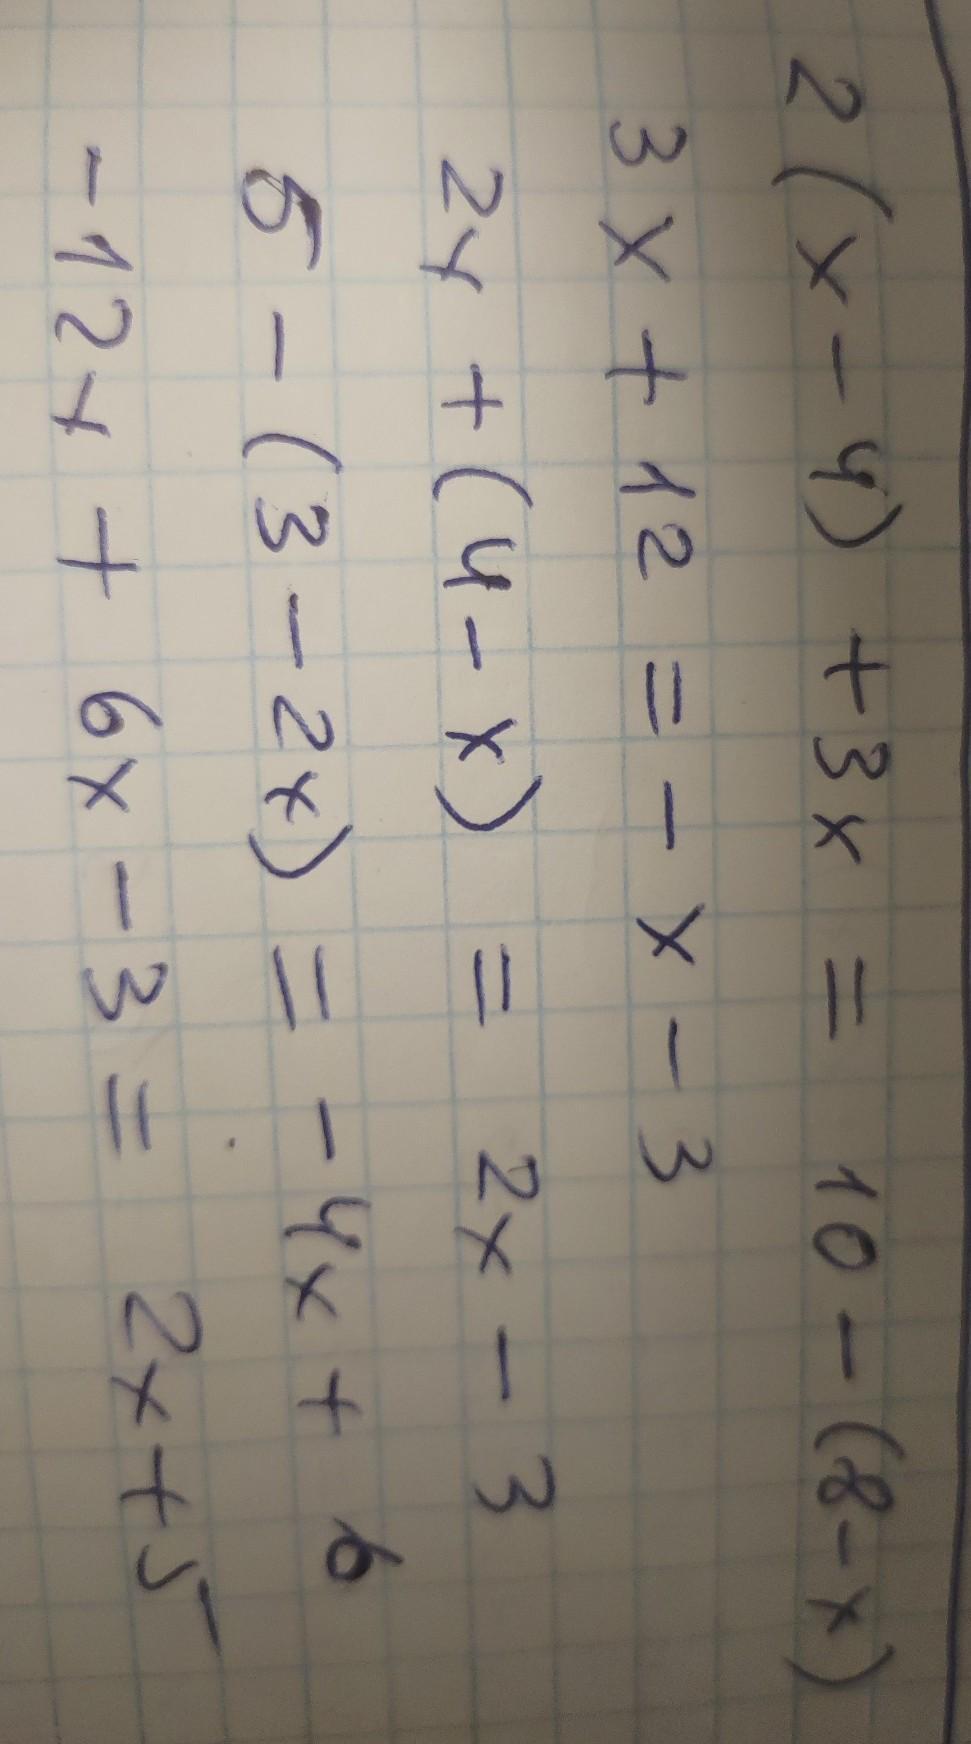 2(x-4) +3x = 10-(8-x)
3x+12=-x-3
2x+(4-x) = 2x-3
5-(3-2x) = -4x+6
-12x+6x-3= 2x+5